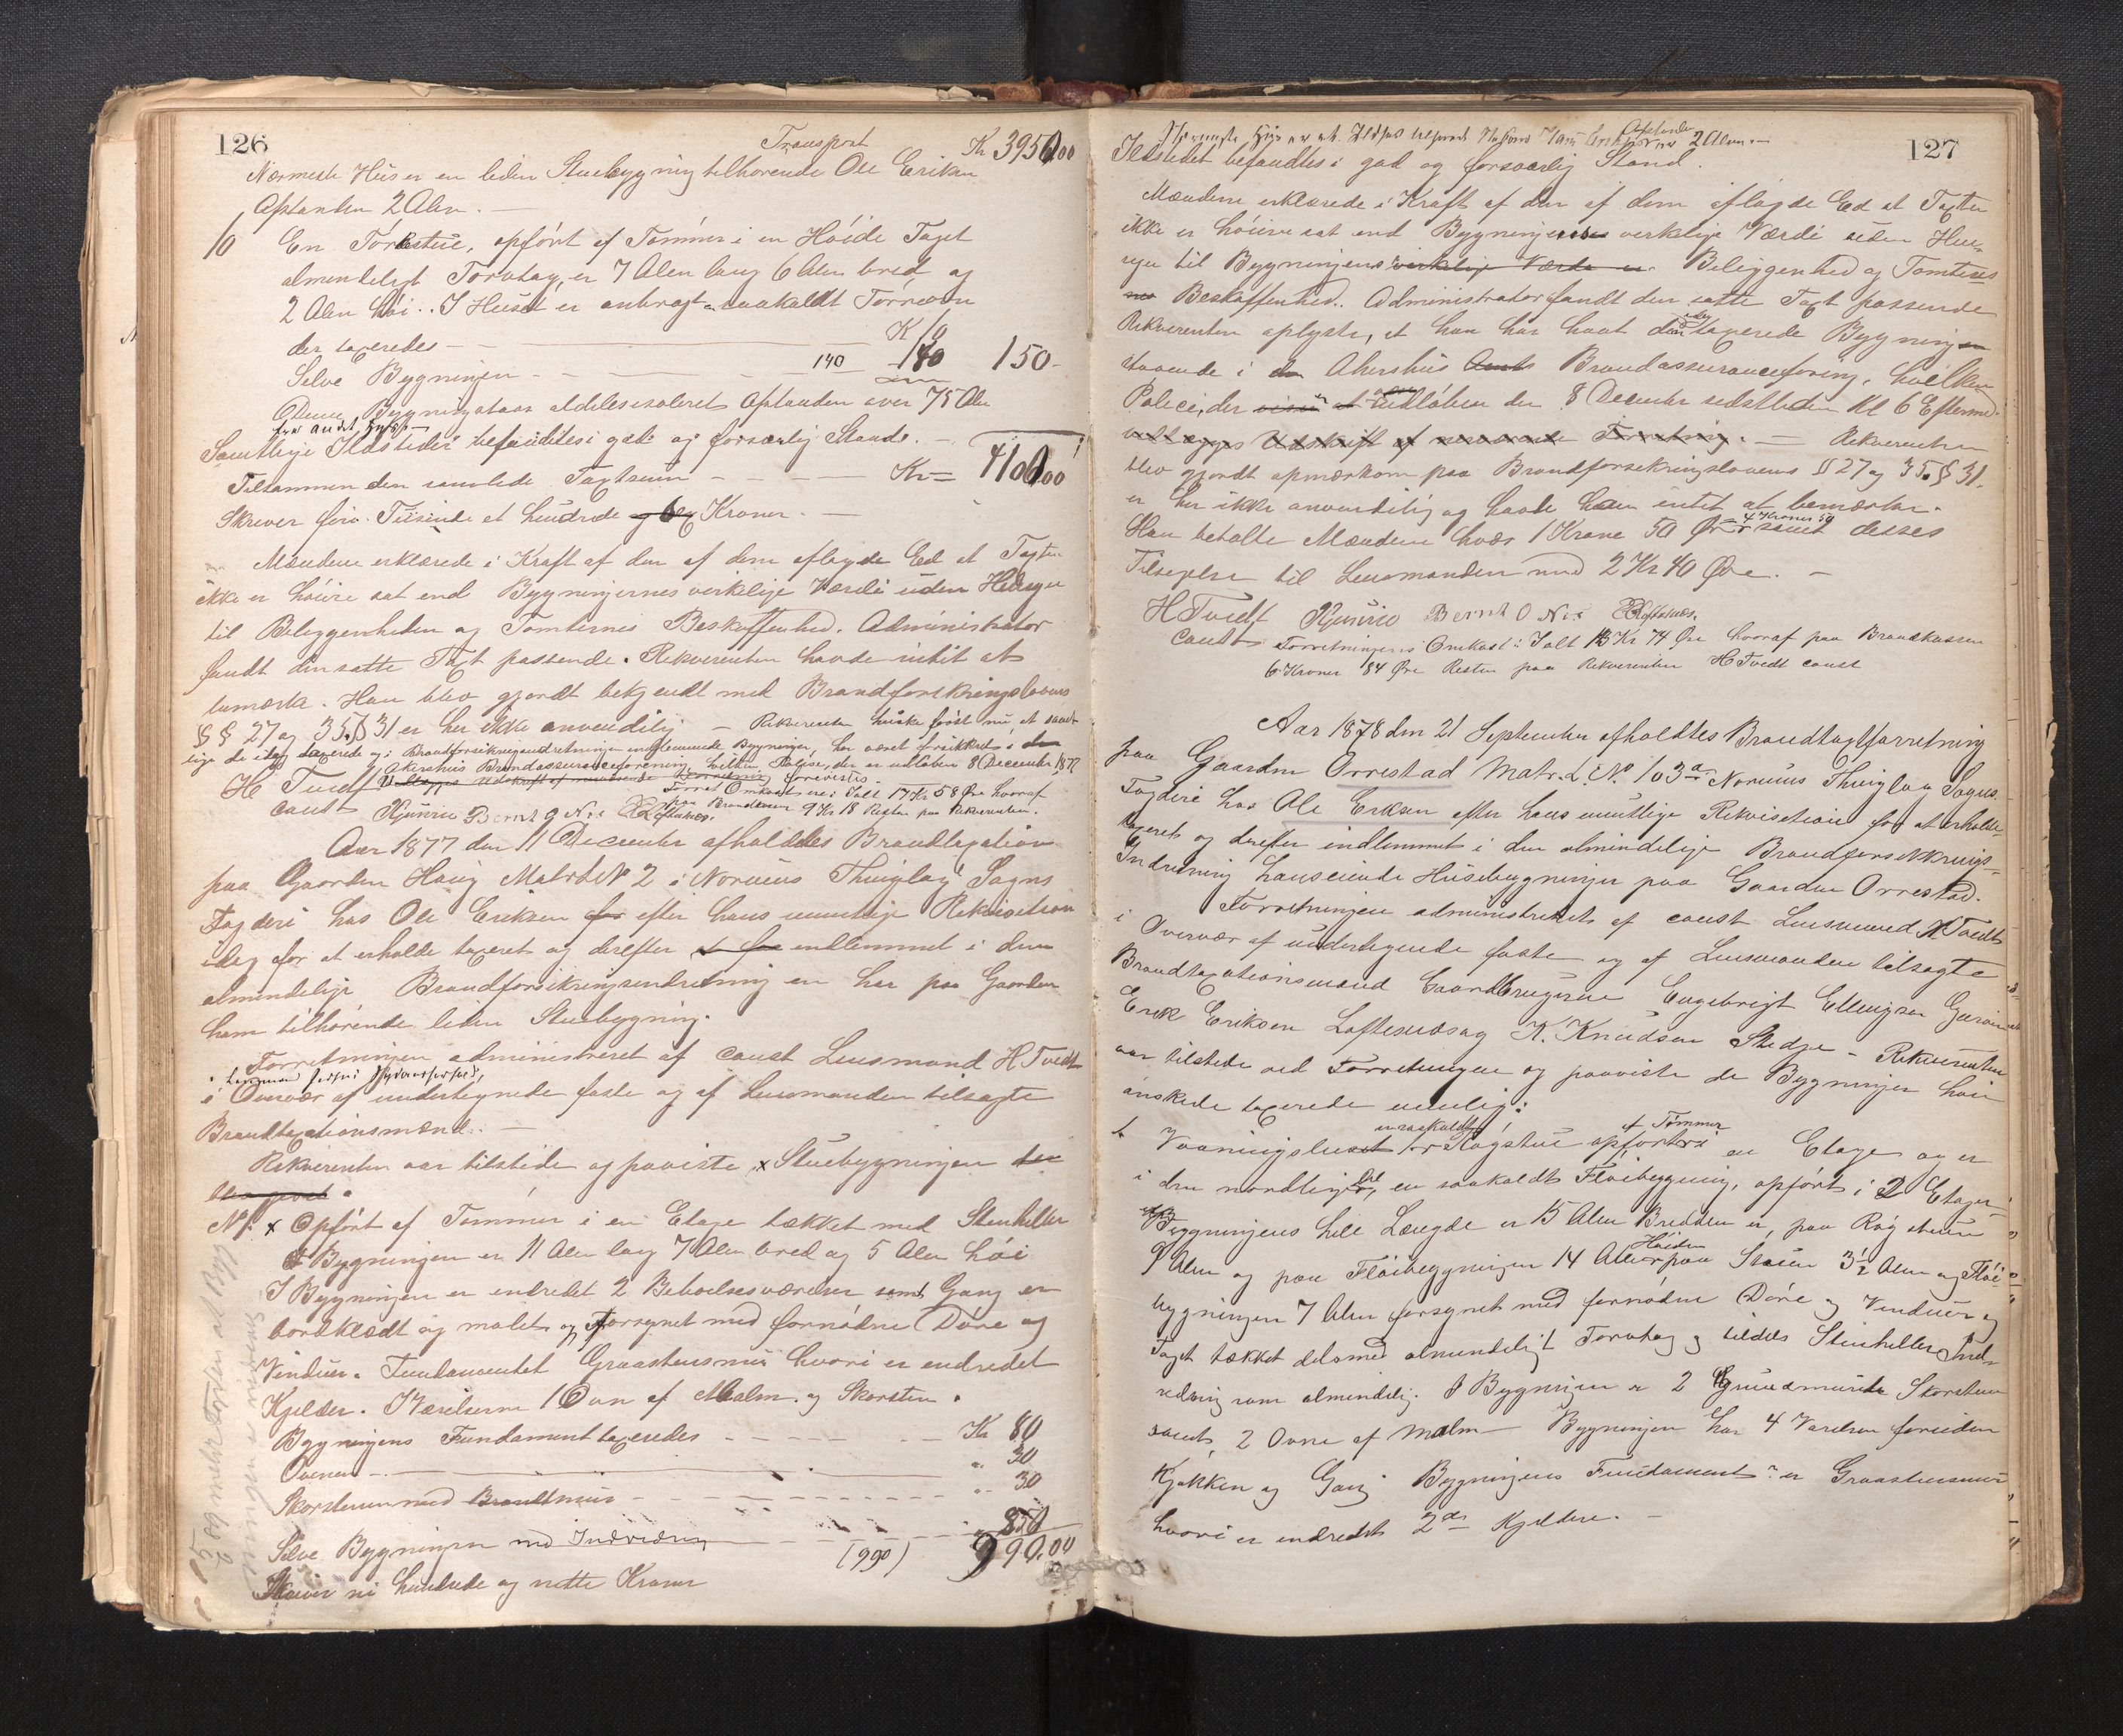 126
Transport Kr 3950,00
Nærmeste Hus er en liden Stuebygning tilhørende Ole Eriksen
Afstanden 2 Alen. —
10 En Tørkestue, opført af Tømmer i en Høide Taget
almindeligt Torvtag, er 7 Alen lang 6 Alen bred og
2 Alen høi. I Huset er anbragt saakaldt Tørreovn
der taxeredes — Kr 10
Selve Bygningen — 140 140 150.
Denne Bygning staar aldeles isoleret Afstanden over 75 Alen
fra andet Huus —
Samtlige Ildsteder befandtes i god og forsvarlig Stand. —
Tilsammen den samlede Taxtsum — Kr = 4100,00
Skriver fire Tusinde et hundrede Kroner. —
Mændene erklærede i Kraft af den af dem aflagde Ed at Taxten
ikke er høiere sat end Bygningernes verkelige Værdi uden Hensyn
til Beliggenheden og Tomternes Beskaffenhed. Administrator
fandt den satte Taxt passende. Rekvirenten havde intet at
bemærke. Han blev gjordt bekjendt med Brandforsikringslovens
§§ 27 og 35. § 31 er her ikke anvendelig — Rekvirenten huske først nu, at samt-
lige de idag taxerede og i Brandforsikringsindretningen indlemmede Bygninger, har været forsikkret i den
Akershus Brandassuranceforening, hvilken Police, der er udløben 8 December 1877
H Tvedt Vedlægges Udskrift af nærværende Forretning forevistes.
const Forret Omkostnere: Ialt 17 Kr 58 Øre hvoraf
Kjurrie Bernt O Nes paa Brandkassen 9 Kr 18 Resten paa Rekvirenten.
Aar 1877 den 11 December afholdtes Brandtaxation
paa Gaarden Haug Matr № 2 i Norums Thinglag Sogns
Fogderi hos Ole Eriksen for efter hans mundtlige Rekvisition
idag for at erholde taxeret og derefter at faa indlemmet i den
almindelige Brandforsikringsindretning en her paa Gaarden
ham tilhørende liden Stuebygning.
Forretningen administreret af const Lensmand H Tvedt
i Overvær af undertegnede faste og af Lensmanden tilsagte
Brandtaxationsmænd. —
Rekvirenten var tilstede og paaviste x Stuebygningen der
blev
№ 1. x Opført af Tømmer i en Etage tækket med Stenheller
Bygningen er 11 Alen lang 7 Alen bred og 5 Alen høi
I Bygningen er indredet 2 Beboelsesværelser samt Gang er
bordklædt og malet og forsynet med fornødne Døre og
Vinduer. Fundamentet Graastensmur hvori er indredet
Kjelder. I Værelserne 1 Ovn af Malm og Skorsten.
Bygningens Fundament taxeredes — Kr 80
Ovnen — " 30
Skorstenen med Brandmur — " 30
Selve Bygningen med Indredning — " 850
(990) 990,00
Skriver ni hundrede og nitte Kroner
127
Nærmeste Huus er et Ildhus tilhørende Afstanden 2 Alen —
Ildstedet befandtes i god og forsvarlig Stand.
Mændene erklærede i Kraft af den af dem aflagde Ed at Taxten
ikke er høiere sat end Bygningens verkelige Værdi uden Hen-
syn til Bygningens verkelige Værde er Beliggenhed og Tomtens
Beskaffenhed. Administrator fandt den satte Taxt passende
Rekvirenten oplyste, at han har havt den idag taxerede Bygning
staaende i den Akershus Amts Brandassuranceforening, hvilken
Police, der udløben den 8 December sidstleden Kl 6 Efterm.
vedlægges Udskrift af nærværende Forretning. — Rekvirenten
blev gjordt opmærksom paa Brandforsikringslovens §§ 27 og 35. § 31.
er her ikke anvendelig og havde han intet at bemærke.
Han betalte Mændene hver 1 Krone 50 Øre = 4 Kroner 50 samt desses
Tilsigelse til Lensmanden med 2 Kr 40 Øre. —
H Tvedt Kjurrie Bernt O Nes
const Forretningens Omkost: Ialt 13 Kr 74 Øre hvoraf paa Brandkassen
6 Kroner 84 Øre Resten paa Rekvirenten H Tvedt const
Aar 1878 den 21 September afholdtes Brandtaxtforretning
paa Gaarden Orrestad Matr. L № 103a Norums Thinglag Sogns
Fogderi hos Ole Eriksen efter hans mundtlige Rekvisition for at erholde
taxeret og derefter indlemmet i den almindelige Brandforsikkrings-
Indretning hans eiende Husebygninger paa Gaarden Orrestad.
Forretningen administreret af const Lensmand H. Tvedt
i Overvær af undertegnede faste og af Lensmanden tilsagte
Brandtaxationsmænd Gaardbrugerne Engebrigt Ellingsen
Erik Eriksen Loftesnæs og K. Knudsen Stedje — Rekvirenten
var tilstede ved Forretningen og paaviste de Bygninger han
ønskede taxerede nemlig:
1 Vaaningshuset en saakaldt Røgstue opført af Tømmer i en Etage og er
i den nordlige Del en saakaldt Fløibygning, opført i 2 Etager
Bygningens hele Længde er 15 Alen Bredden er, paa Røgstuen
9 Alen og paa Fløibygningen 14 Alen Høiden paa Stuen 3½ Alen og Fløi-
bygningen 7 Alen forsynet med fornødne Døre og Vinduer og
Taget tækket dels med almindeligt Torvtag og tildels Stenheller Ind-
redning som almindelig. I Bygningen er 2 Grundmurede Skorstene
samt 2 Ovne af Malm — Bygningen har 4 Værelser foruden
Kjøkken og Gang. Bygningens Fundament er Graastensmur
hvori er indredet 2de Kjeldere. —